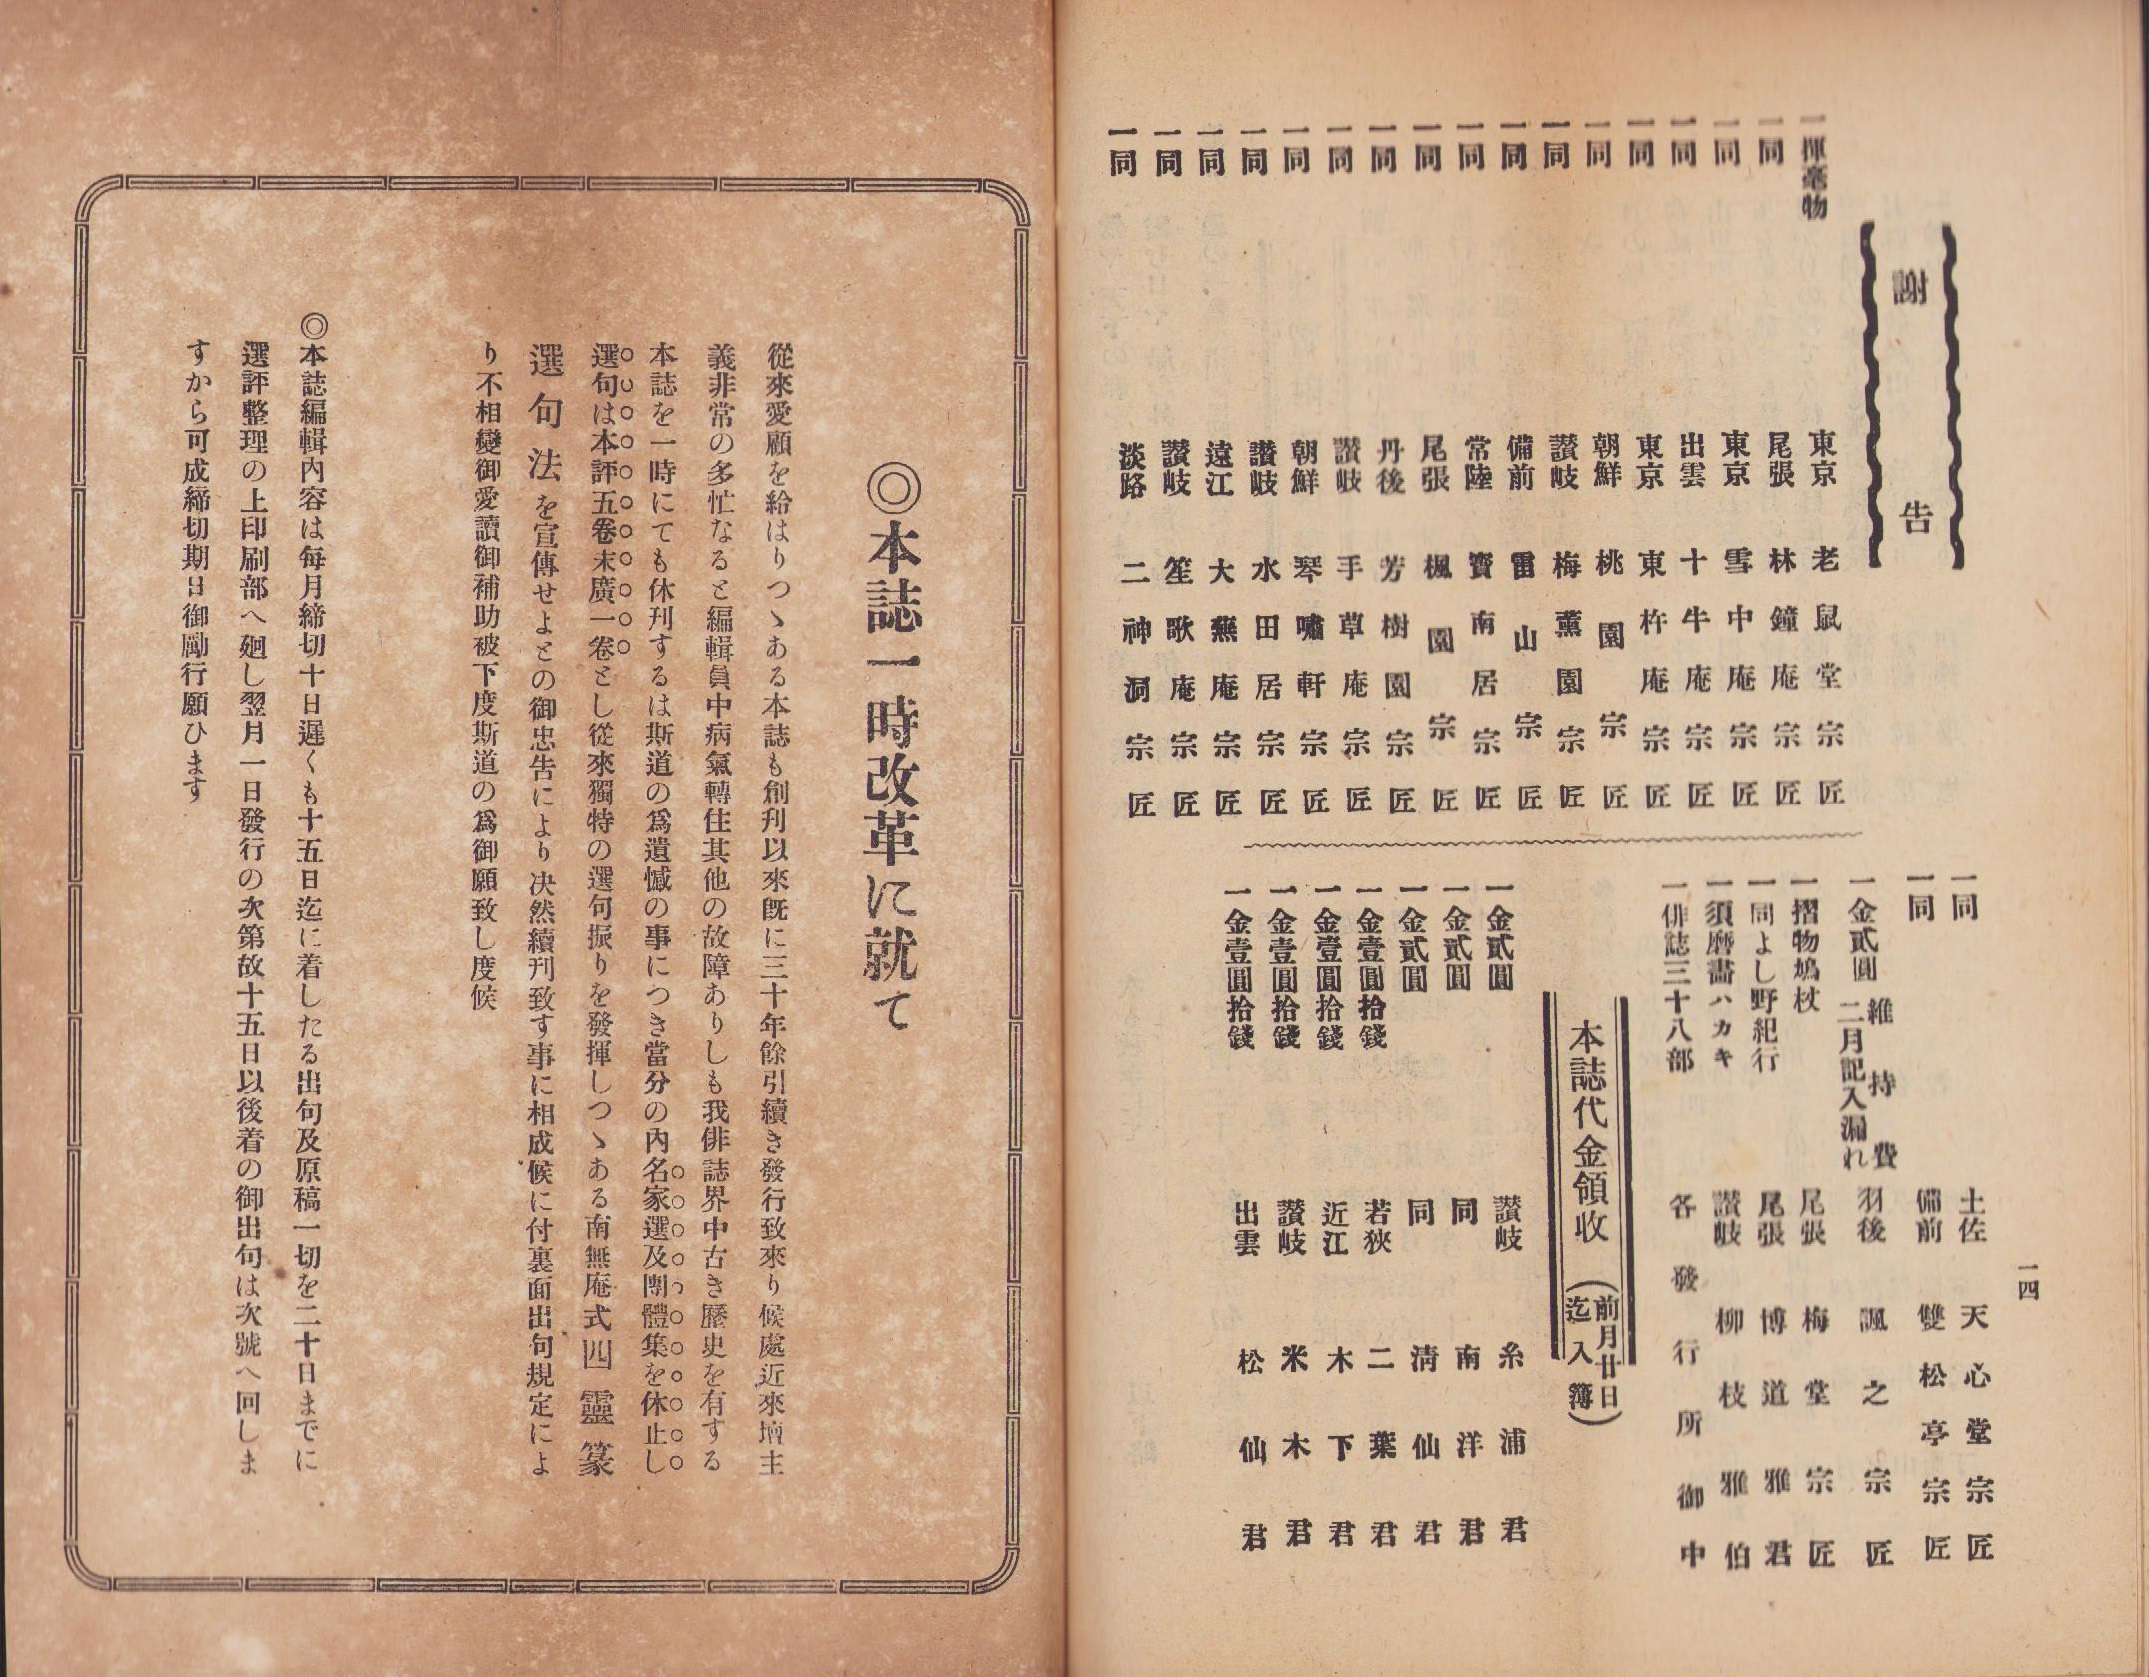 謝告
一揮毫物 東京 老鼠堂宗匠
一同 尾張 林鐘庵宗匠
一同 東京 雪中庵宗匠
一同 出雲 十牛庵宗匠
一同 東京 東杵庵宗匠
一同 朝鮮 桃園宗匠
一同 讃岐 梅薫園宗匠
一同 備前 雷山宗匠
一同 常陸 寶南居宗匠
一同 尾張 楓園宗匠
一同 丹後 芳樹園宗匠
一同 讃岐 手草庵宗匠
一同 朝鮮 琴嘯軒宗匠
一同 讃岐 水田居宗匠
一同 遠江 大蕪庵宗匠
一同 讃岐 笙歌庵宗匠
一同 淡路 二神洞宗匠
一同 土佐 天心堂宗匠
一同 備前 雙松亭宗匠
一金貳圓 維持費 二月記入漏れ 羽後 諷之宗匠
一摺物鳩杖 尾張 梅堂宗匠
一同よし野紀行 尾張 博道雅君
一須磨畵ハカキ 讃岐 柳枝雅伯
一俳誌三十八部 各發行所御中
本誌代金領收(前月廿日迄入簿)
一金貳圓 讃岐 糸浦君
一金貳圓 同 南洋君
一金貳圓 同 淸仙君
一金壹圓拾錢 若狹 二葉君
一金壹圓拾錢 近江 木下君
一金壹圓拾錢 讃岐 米木君
一金壹圓拾錢 出雲 松仙君
一四
◎本誌一時改革に就て
從來愛顧を給はりつゝある本誌も創刊以來旣に三十年餘引續き發行致來り候處近來壇主
義非常の多忙なると編輯員中病氣轉住其他の故障ありしも我俳誌界中古き歷史を有する
本誌を一時にても休刊するは斯道の爲遺憾の事につき當分の内名家選及團體集を休止し
選句は本評五卷末廣一卷とし從來獨特の選句振りを發揮しつゝある南無庵式四靈篆
選句法を宣傳せよとの御忠告により决然續刊致す事に相成候に付裏面出句規定によ
り不相變御愛讀御補助被下度斯道の爲御願致し度候
◎本誌編輯内容は每月締切十日遲くも十五日迄に着したる出句及原稿一切を二十日までに
選評整理の上印刷部へ廻し翌月一日發行の次第故十五日以後着の御出句は次號へ回しま
すから可成締切期日御勵行願ひます